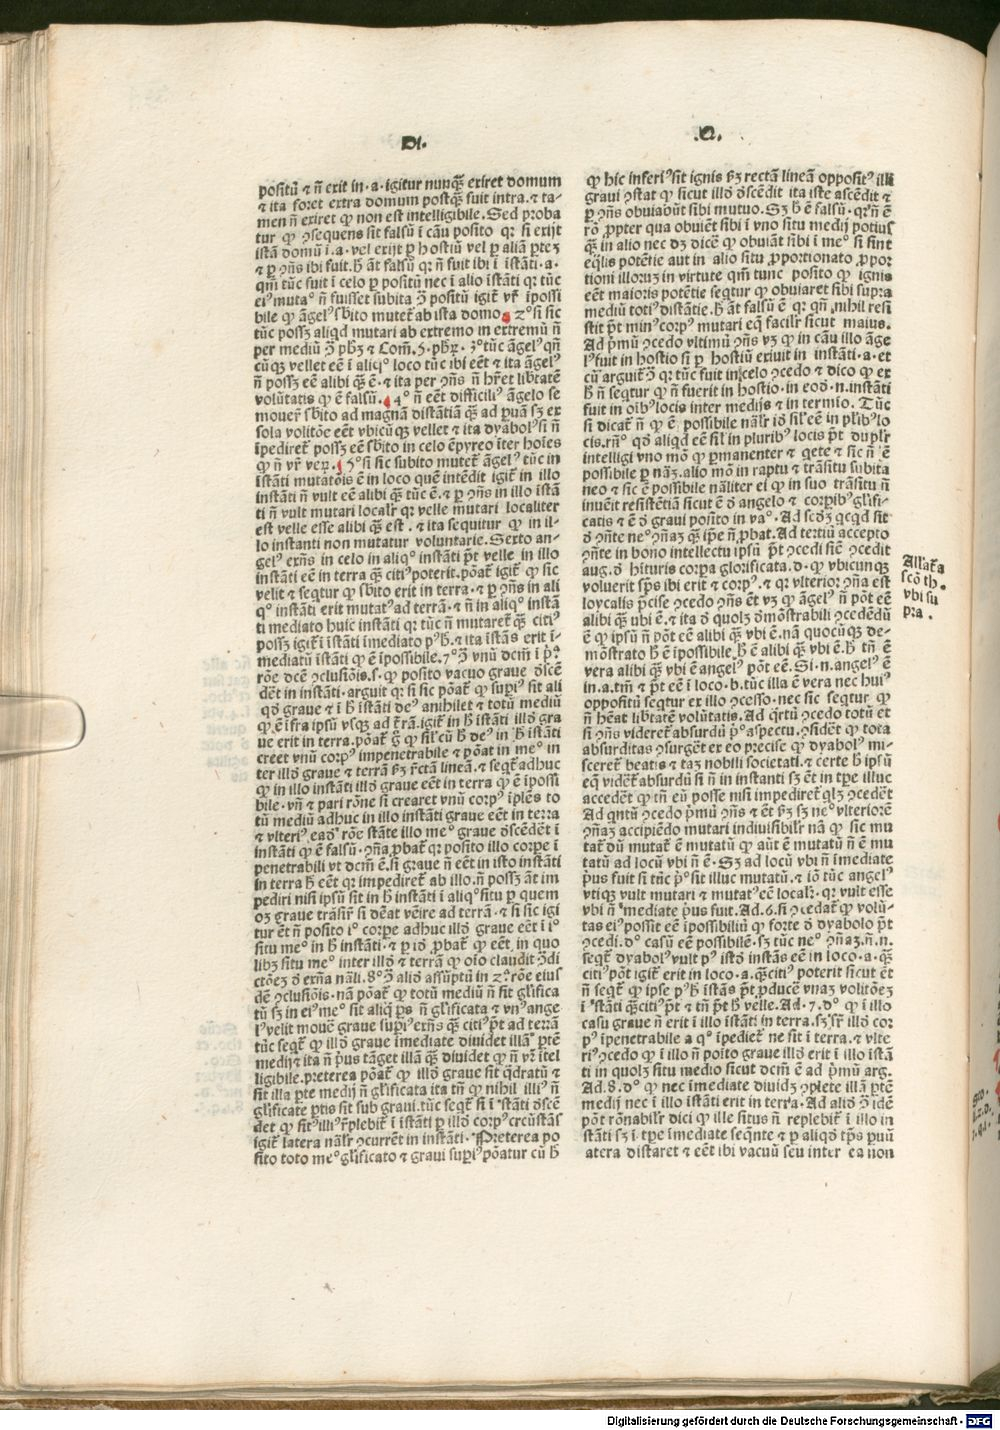 Di.
.Q.
positū ⁊ n̄ exit in·a·igitur nunq̄ꝫ exiret domum
⁊ ita foret extra domum postq̄ꝫ fuit intra.⁊ ta-
men n̄ exiret ꝙ non est intelligibile. Sed proba
tur ꝙ ꝯsequens sit falsū ī cāu posito qꝛ si exijt
istā domū ī.a·vel exijt ꝑ hostiū vel ꝑ aliā ꝑteꝫ
⁊ ꝑ ꝯn̄s ibi fuit. h̄ āt falsū qꝛ n̄ fuit ibi ī īstāti·a·
qm̄ tūc fuit ī celo ꝑ positū nec ī alio īstāti qꝛ tūc
eiꝰ mutaᵒ n̄ fuisset subita ꝯ̄ positū igit̄ vr̄ īpossi
bile ꝙ āgelꝰ sb̄ito mutet̄ ab ista domo. 2ᵒ si sic
tūc possꝫ aliqd mutari ab extremo in extremū n̄
per mediū ꝯ̄ pħꝫ ⁊ Com̄.5·phꝝ.·3ᵒ tūc āgelꝰ qn̄
cūqꝫ vellet eē ī aliqᵒ loco tūc ibi eēt ⁊ ita āgelꝰ
n̄ possꝫ eē alibi q̄ꝫ ē·⁊ ita per ꝯn̄s n̄ hr̄et libtatē
volūtatis ꝙ ē falsū. 4ᵒ n̄ eēt difficiliꝰ āgelo se
mouer̄ sb̄ito ad magnā distātiā q̄ꝫ ad ꝑuā sꝫ ex
sola volitōe eēt vbicūqꝫ vellet ⁊ ita dyabolꝰ si n̄
īpediret̄ possꝫ eē sb̄ito in celo ēpyreo īter hoīes
ꝙ n̄ vr̄ veꝝ. 5ᵒ si sic subito mutet̄ āgelꝰ tūc in
īstāti mutatōis ē in loco quē intēdit igit̄ in illo
instāti n̄ vult eē alibi q̄ꝫ tūc ē.⁊ ꝑ ꝯn̄s in illo īstā
ti n̄ vult mutari localr̄ qꝛ velle mutari localiter
est velle esse alibi q̄ꝫ est.⁊ ita sequitur ꝙ in il-
lo instanti non mutatur voluntarie. Sexto an-
gelꝰ exn̄s in celo in aliqᵒ instāti p̄t velle in illo
instāti eē in terra q̄ꝫ citiꝰ poterit. pōat̄ igit̄ ꝙ sic
velit ⁊ seqtur ꝙ sb̄ito erit in terra·⁊ ꝑ ꝯn̄s in ali
qᵒ instāti erit mutatꝰ ad terrā·⁊ n̄ in aliqᵒ instā
ti mediato huic instāti qꝛ tūc n̄ mutaret̄ q̄ꝫ citiꝰ
possꝫ igit̄ ī īstāti īmediato pꝰ h̄.⁊ ita īstās erit ī-
mediatū īstāti ꝙ ē īpossibile.7ᵒ ꝯ̄ vnū dcm̄ ī p̄ᵃ
rōe dcē ꝯclusiōis.s. ꝙ posito vacuo graue d̄scē
dēt in instāti·arguit qꝛ si sic pōat̄ ꝙ supꝰ sit ali
qd̄ graue ⁊ ī h̄ īstāti deꝰ anihilet ⁊ totū mediū
ꝙ ē īfra ipsū vsqꝫ ad t̄rā.igit̄ in h̄ īstāti illd̄ gra
ue erit in terra.pōat̄ g̊ ꝙ sil̄ cū h̄ deꝰ in h̄ īstāti
creet vnū corpꝰ impenetrabile ⁊ pōat in meᵒ in
ter illd̄ graue ⁊ terrā b̄ꝫ r̄ctā lineā.⁊ seqt̄ adhuc
ꝙ in illo instāti illd̄ graue eēt in terra ꝙ ē īpossi
bile·vn̄ ⁊ pari rōne si crearet vnū corpꝰ īplēs to
tū mediū adhuc in illo instāti graue eēt in terra
⁊ vlteriꝰ eadē rōe stāte illo meᵒ graue d̄scēdēt ī
instāti ꝙ ē falsū.ꝯn̄a ꝓbat̄ qꝛ posito illo corpe ī
penetrabili vt dcm̄ ē.si graue n̄ eēt in isto instāti
in terra h̄ eēt qꝛ impediret̄ ab illo.n̄ possꝫ āt im
pediri nisi ipsū sit in h̄ instāti ī aliqᵒ situ ꝑ quem
oꝫ graue trāsir̄ si dēat vēire ad terrā·⁊ si sic igi
tur ēt n̄ posito iᵒ corpe adhuc illd̄ graue eēt ī iᵒ
situ meᵒ in h̄ instāti·⁊ ꝑ id̄ ꝓbat̄ ꝙ eēt in quo
libꝫ situ meᵒ inter illd̄ ⁊ terrā ꝙ oīo claudit ꝯ̄di
ctōeꝫ d̄ exn̄a nāli.8ᵒ ꝯ̄ aliō assūptū in 2ᵃ rōe eius
dē ꝯclusiōis·nā pōat̄ ꝙ totū mediū n̄ sit gl̄ifica
tū sꝫ in eiꝰ meᵒ sit aliq̄ ꝑs n̄ gl̄ificata ⁊ vnꝰ ange
lꝰ velit mouē graue supꝰ exn̄s q̄ꝫ citiꝰ p̄t ad terrā
tūc seqt̄ ꝙ illd̄ graue īmediate diuidet illā ꝑtē
medij ⁊ ita n̄ pꝰus tāget illā q̄ꝫ diuidet ꝙ n̄ vr̄ ītel
ligibile.preterea pōat̄ ꝙ illd̄ graue sit q̄dratū ⁊
sit illa ꝑte medij n̄ gl̄ificata ita tn̄ ꝙ nihil illiꝰ n̄
gl̄ificate ꝑtis sit sub graui.tūc seqt̄ si ī īstāti d̄scē
det ꝙ sitꝰ illiꝰ r̄plebit̄ ī īstāti ꝑ illd̄ corpꝰ crcūstās
igit̄ latera nālr̄ ꝯcurrēt in instāti. Preterea po
sito toto meᵒ gl̄ificato ⁊ graui supꝰi pōatur cū h̄
ꝙ hic inferiꝰ sit ignis b̄ꝫ rectā lineā oppositꝰ illi
graui ꝯstat ꝙ sicut illd̄ d̄scēdit ita iste ascēdit ⁊
ꝑ ꝯn̄s obuiabūt sibi mutuo. Sꝫ h̄ ē falsū·qꝛ n̄ ē
rō ꝓpter qua obuiēt sibi ī vno situ medij potius
q̄ꝫ in alio nec dꝫ dicē ꝙ obuiāt sibi ī meᵒ si sint
eq̄lis potētie aut in alio situ ꝓportionato ꝓpor
tioni illoruꝫ in virtute qm̄ tunc posito ꝙ ignis
eēt maioris potētie seqtur ꝙ obuiaret sibi supra
mediū totiꝰ distātie.h̄ āt falsū ē qꝛ qn̄ nihil resi
stit p̄t minꝰ corpꝰ mutari eq̄ facilr̄ sicut maius.
Ad p̄mū ꝯcedo vltimū ꝯn̄s vꝫ ꝙ in cāu illo āge
lꝰ fuit in hostio si ꝑ hostiū exiuit in instāti·a·et
cū arguit̄ ꝯ̄ qꝛ tūc fuit in celo ꝯcedo ⁊ dico ꝙ ex
h̄ n̄ seqtur ꝙ n̄ fuerit in hostio·in eod̄·n.instāti
fuit in oībꝰ locis inter medijs ⁊ in termio. Tūc
si dicat̄ n̄ ꝙ ē possibile nālr̄ id̄ sil̄ eē in pl̄ibꝰ lo
cis.rn̄ᵒ qd̄ aliqd eē sil̄ in pluribꝰ locis p̄t duplr̄
intelligi vno mō ꝙ ꝑmanenter ⁊ qete ⁊ sic n̄ ē
possibile ꝑ nāꝫ.alio mō in raptu ⁊ trāsitu subita
neo ⁊ sic ē possibile nāliter ei ꝙ in suo trāsitu n̄
inuēit resistētiā sicut ē d̄ angelo ⁊ corpibꝰ gl̄ifi-
catis ⁊ ē d̄ graui posito in vaᵒ·Ad scd̄ꝫ qcqd sit
d̄ ꝯn̄te neᵒ ꝯn̄aꝫ q̄ꝫ ip̄e n̄ ꝓbat. Ad tertiū accepto
ꝯn̄te in bono intellectu ipsū p̄t ꝯcedi siē ꝯcedit
aug.d̄ hituris corpa glorificata.d·ꝙ vbicunqꝫ
voluerit sp̄s ibi erit ⁊ corpꝰ.⁊ qꝛ vlterior ꝯn̄a est
loycalis p̄cise ꝯcedo ꝯn̄s ēt vꝫ ꝙ āgelꝰ n̄ pōt eē
alibi q̄ꝫ ubi ē.⁊ ita d̄ quolꝫ dmōstrabili ꝯcedēdū
ē ꝙ ipsū n̄ pōt eē alibi q̄ꝫ vbi ē.nā quocūqꝫ de-
mōstrato h̄ ē īpossibile h̄ ē alibi q̄ꝫ vbi ē.h̄ tn̄ ē
vera alibi q̄ꝫ vbi ē angelꝰ pōt eē. Si·n.angelꝰ ē
in.a.tm̄ ⁊ p̄t eē ī loco·b.tūc illa ē vera nec huiꝰ
oppositū seqtur ex illo ꝯcesso·nec sic seqtur ꝙ
n̄ hēat libtatē volūtatis. Ad q̄rtū ꝯcedo totū et
si ꝯn̄s videret̄ absurdū p̄ᵒ aspectu.ꝯsidēt ꝙ tota
absurditas ꝯsurgēt ex eo precise ꝙ dyabolꝰ mi-
sceret̄ beatis ⁊ taꝫ nobili societati.⁊ certe h̄ ipsū
eq̄ vidēt̄ absurdū si n̄ in instanti sꝫ ēt in tp̄e illuc
accedēt ꝙ tn̄ eū posse nisi impediret̄ qlꝫ ꝯcedēt
Ad qntū ꝯcedo p̄mū ꝯn̄s ⁊ ēt b̄ꝫ sꝫ neᵒ vlteriorē
ꝯn̄aꝫ accipiēdo mutari indiuisibilr̄ nā ꝙ sic mu
tat̄ dū mutat̄ ē mutatū ꝙ aūt ē mutatū n̄ ē mu
tatū ad locū vbi n̄ ē·Sꝫ ad locū vbi n̄ īmediate
p̄us fuit si tn̄c p̄ᵒ sit illuc mutatū.⁊ iō tūc angelꝰ
vtiqꝫ vult mutari ⁊ mutatꝰ eē localr̄·qꝛ vult esse
vbi n̄ īmediate p̄us fuit. Ad.6.si ꝯcedat̄ ꝙ volū-
tas eiꝰ possit eē īpossibiliū ꝙ forte d̄ dyabolo p̄t
ꝯcedi.dᵒ casū eē possibilē.sꝫ tūc neᵒ ꝯn̄aꝫ.n̄.n.
seqt̄ dyabolꝰ vult pꝰ istd̄ instās eē in loco·a·q̄ꝫ
citiꝰ pōt igit̄ erit in loco.a.q̄ꝫcitiꝰ poterit sicut ēt
n̄ seqt̄ ꝙ ipse pꝰ h̄ īstās p̄t ꝓducē vnaꝫ volitōeꝫ
ī īstāti q̄ꝫcitiꝰ p̄t ⁊ tn̄ p̄t h̄ velle. Ad·7.dᵒ ꝙ ī illo
casu graue n̄ erit ī illo īstāti in terra.sꝫ sr̄ illd̄ cor
pꝰ īpenetrabile a qᵒ īpediet̄ ne sit ī terra.⁊ vlte
riꝰ ꝯcedo ꝙ ī illo n̄ poīto graue illd̄ erit ī illo īstā
ti in quolꝫ situ medio sicut dcm̄ ē ad p̄mū arg.
Ad.8.dᵒ ꝙ nec īmediate diuidꝫ ꝯplete illā ꝑtē
medij nec ī illo īstāti erit in terra·Ad aliō ꝯ̄ idē
pōt rōnabilr̄ dici ꝙ ille situs n̄ replebit̄ ī illo in
stāti sꝫ ī tp̄e īmediate seqn̄te ⁊ ꝑ aliqd̄ tp̄s ꝑuū
atera distaret ⁊ eēt ibi vacuū seu inter ea non
Allat̄a
scō th.
vbi su
pra.
Digitalisierung gefördert durch die Deutsche Forschungsgemeinschaft - DFG